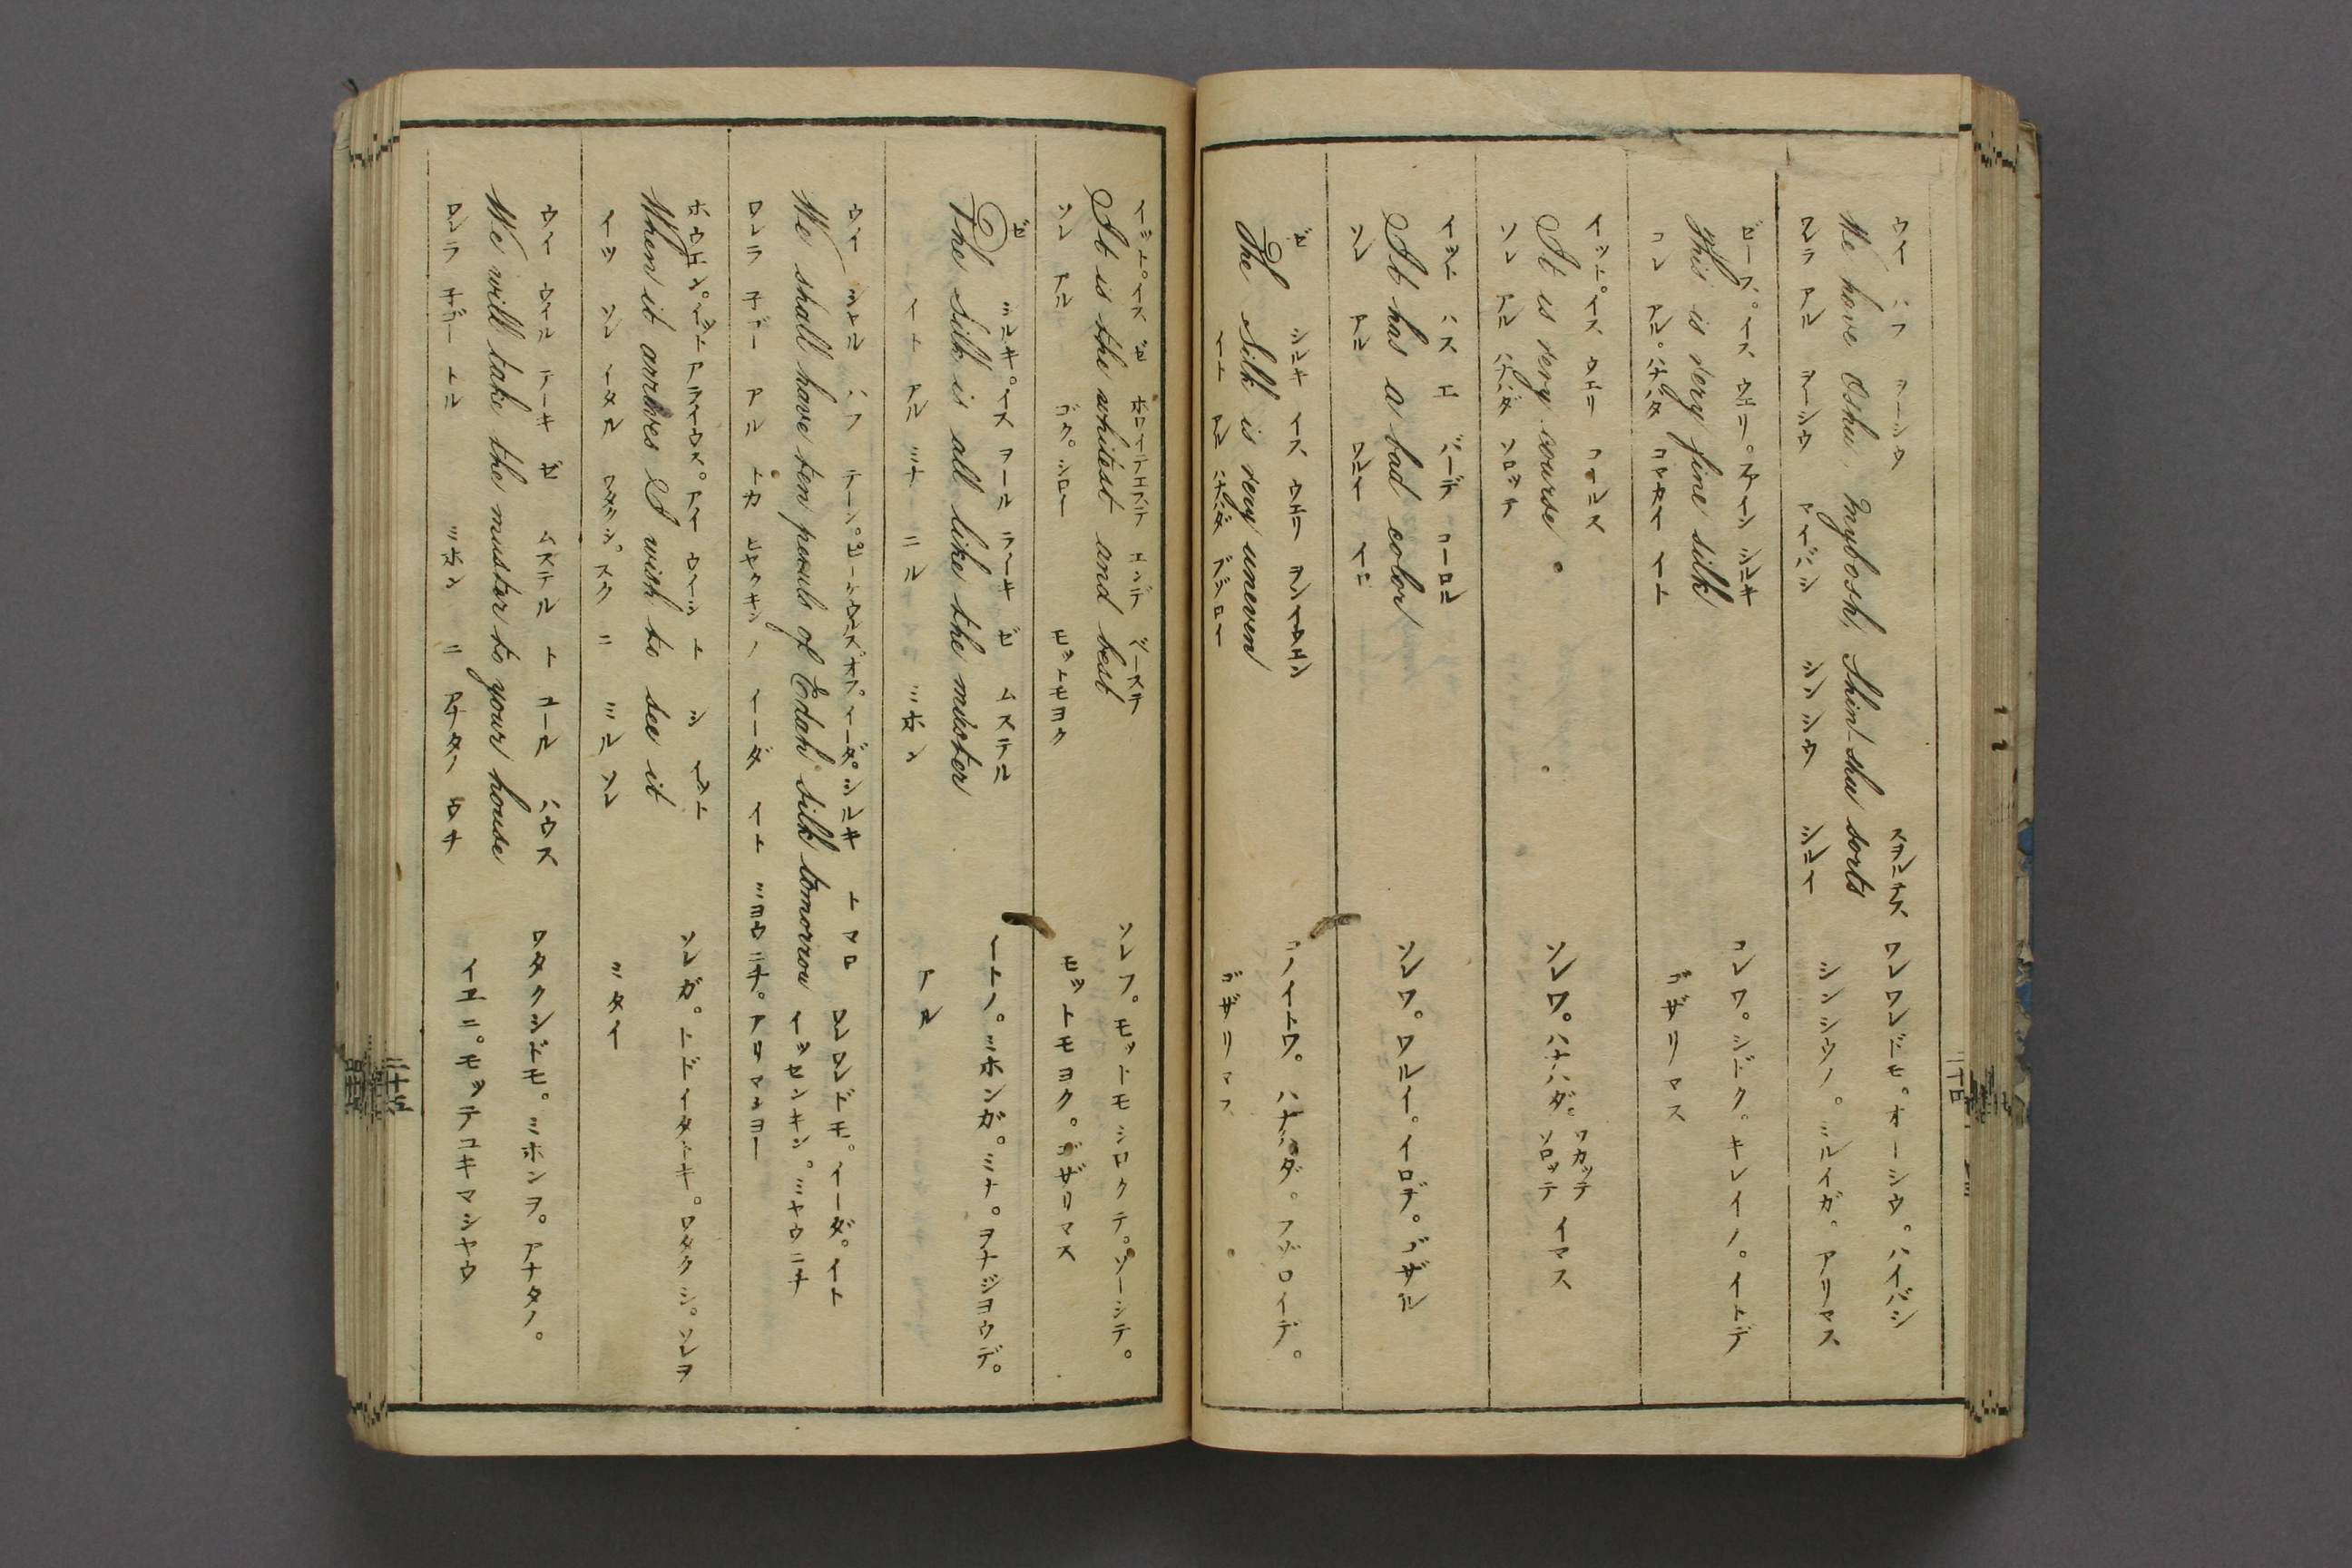 ウイ ハフ ヲーシウ スヲルテス
We have Oshu, Mybosh, Shin-shu sorts
ワレラ アル ヲーシウ マイバシ シンシウ シルイ
ワレワレドモ。オーシウ。ハイバシ
シンシウノ。ミルイガ。アリマス
ゼース。イス ウエリ。フアイン シルキ
This is very fine silk
コレ アル。ハナハダ コマカイ イト
コレワ。シドク。キレイノ。イトデ
ゴザリマス
イット。イス ウエリ コールス
It is very course
ソレ アル ハナハダ ソロッテ
ソレワ。ハナハダ。ワカッテ
ソロッテ イマス
イット ハス エ バーデ コーロル
It has a bad color
ソレ アル ワルイ イロ
ソレワ。ワルイ。イロデ。ゴザル
ゼ シルキ イス ウエリ ヲンイウエン
The Silk is very uneven
イト アル ハナハダ ブゾロイ
コノイトワ。ハナハダ。フゾロイデ。
ゴザリマス
イット。イス ゼ ホワイテエステ エンデ ベーステ
It is the whitest and best
ソレ アル ゴク。シロイ モットモヨク
ソレフ。モットモシロクテ。ソーシテ。
モットモヨク。ゴザリマス
ゼ シルキ。イス ヲール ライキ ゼ ムステル
The silk is all like the mister
イト アル ミナ ニル ミホン
イトノ。ミホンガ。ミナ。ヲナジヨウデ。
アル
ウイ シャル ハフ テーン。ピーケウルス。オフ。イーダ。シルキ トマロ
We shall have ten peculs of Edah silk tomorrow
ワレラ 子バー アル トカ ヒャクキンノ イーダ イト ミヨウニチ。アリマショー
ワレワレドモ。イーダ。イト
イッセンキン。ミヤウニチ
ホウエン。イット アライウス。アイ ウイシ ト シ イット
When it arrives I wish to see it
イツ ソレ イタル ワタクシ。スク ニ ミル ソレ
ソレガ。トドイタトキ。ワタクシ。ソレヲ
ミタイ
ウイ ウイル テーキ ゼ ムステル ト ユール ハウス
We will take the muster to your house
ワレラ 子ゴー トル ミホン ニ アナタノ ウチ
ワタクシドモ。ミホンヲ。アナタノ。
イエニ。モッテユキマシャウ
二十五